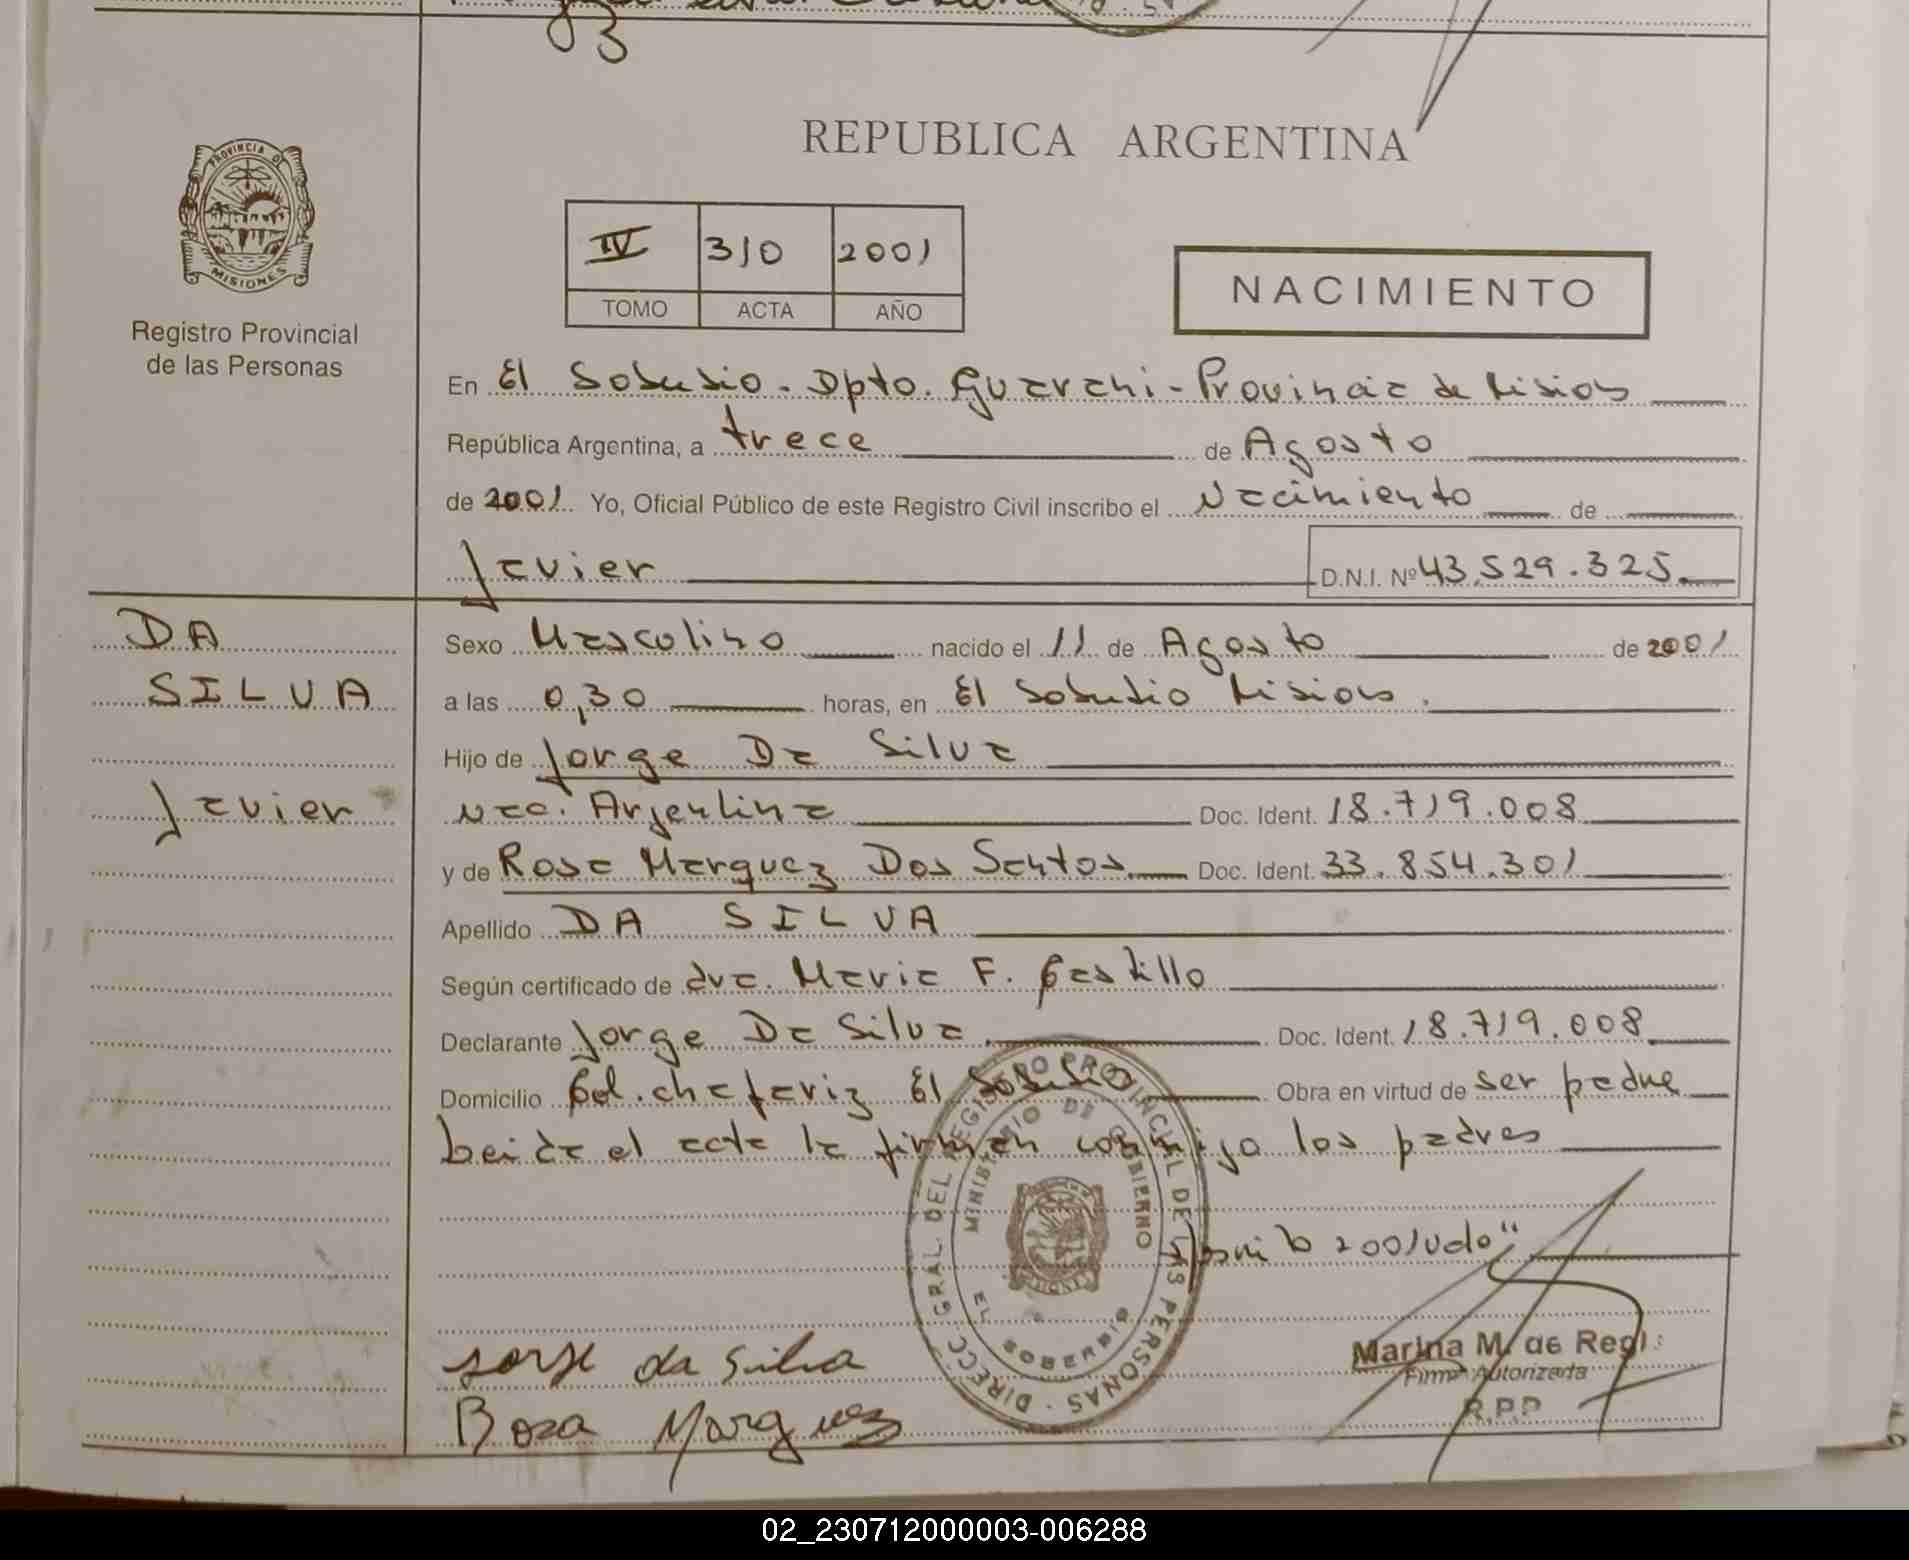 PROVINCIA DE
MISIONES
Registro Provincial
de las Personas
REPUBLICA ARGENTINA
IV 310 2001
TOMO ACTA AÑO
NACIMIENTO
En El Soberbio - Dpto. Guarani - Provincia de Misiones
República Argentina, a trece de Agosto
de 2001 Yo, Oficial Público de este Registro Civil inscribo el Nacimiento de
Javier D.N.I. Nº 43.529.325.
DA
SILVA
Javier
Sexo Masculino nacido el 11 de Agosto de 2001
a las 0,30 horas, en El Soberbio Misiones.
Hijo de Jorge Da Silva
Nac. Argentina Doc. Ident. 18.719.008
y de Rosa Marquez Dos Santos Doc. Ident. 33.854.301
Apellido DA SILVA
Según certificado de dra. Maria F. Castillo
Declarante Jorge Da Silva Doc. Ident. 18.719.008
Domicilio Col. chafariz El Soberbio Obra en virtud de ser padre
Leida el acta la firman conmigo los padres
2001 vale"
DIRECC. GRAL. DEL REGISTRO PROVINCIAL DE LAS PERSONAS
MINISTERIO DE GOBIERNO
EL SOBERBIO
Jorge da Silva
Rosa Marquez
Marina M. de
Firma Autorizada
R.P.P.
02_230712000003-006288